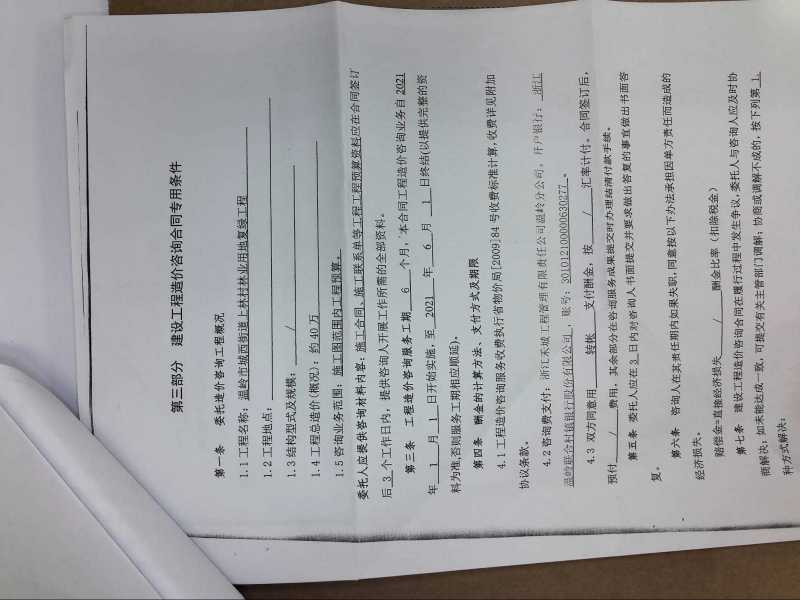 第三部分　建设工程造价咨询合同专用条件
第一条　委托造价咨询工程概况
1.1工程名称：温岭市城西街道上林村林业用地复绿工程
1.2工程地点：
1.3结构型式及规模：　/
1.4工程总造价(概况)：约40万
1.5咨询业务范围：施工图范围内工程预算。
委托人应提供咨询材料内容：施工合同、施工联系单等工程工程预算资料应在合同签订
后3个工作日内，提供咨询人开展工作所需的全部资料。
第三条　工程造价咨询服务工期　6　个月，本合同工程造价咨询业务自2021
年　1　月　1　日开始实施，至　2021　年　6　月　1　日终结(以提供完整的资
料为准,否则服务工期相应顺延)。
第四条　酬金的计算方法、支付方式及期限
4.1工程造价咨询服务收费执行省物价局[2009]84号收费标准计算,收费详见附加
协议条款。
4.2咨询费支付：浙江禾城工程管理有限责任公司温岭分公司，开户银行：浙江
温岭联合村镇银行股份有限公司，账号：201012100000630277。
4.3 双方同意用　同转帐　支付酬金，按　/　汇率计付。合同签订后，
预付　/　费用，其余部分在咨询服务成果提交时办理结清付款手续。
第五条　委托人应在3日内对咨询人书面提交并要求做出答复的事宜做出书面答
复。
第六条　咨询人在其责任期内如果失职,同意按以下办法承担因单方责任而造成的
经济损失。
赔偿金=直接经济损失　/　酬金比率（扣除税金）
第七条　建设工程造价咨询合同在履行过程中发生争议,委托人与咨询人应及时协
商解决；如未能达成一致，可提交有关主管部门调解；协商或调解不成的，按下列第1
种方式解决：